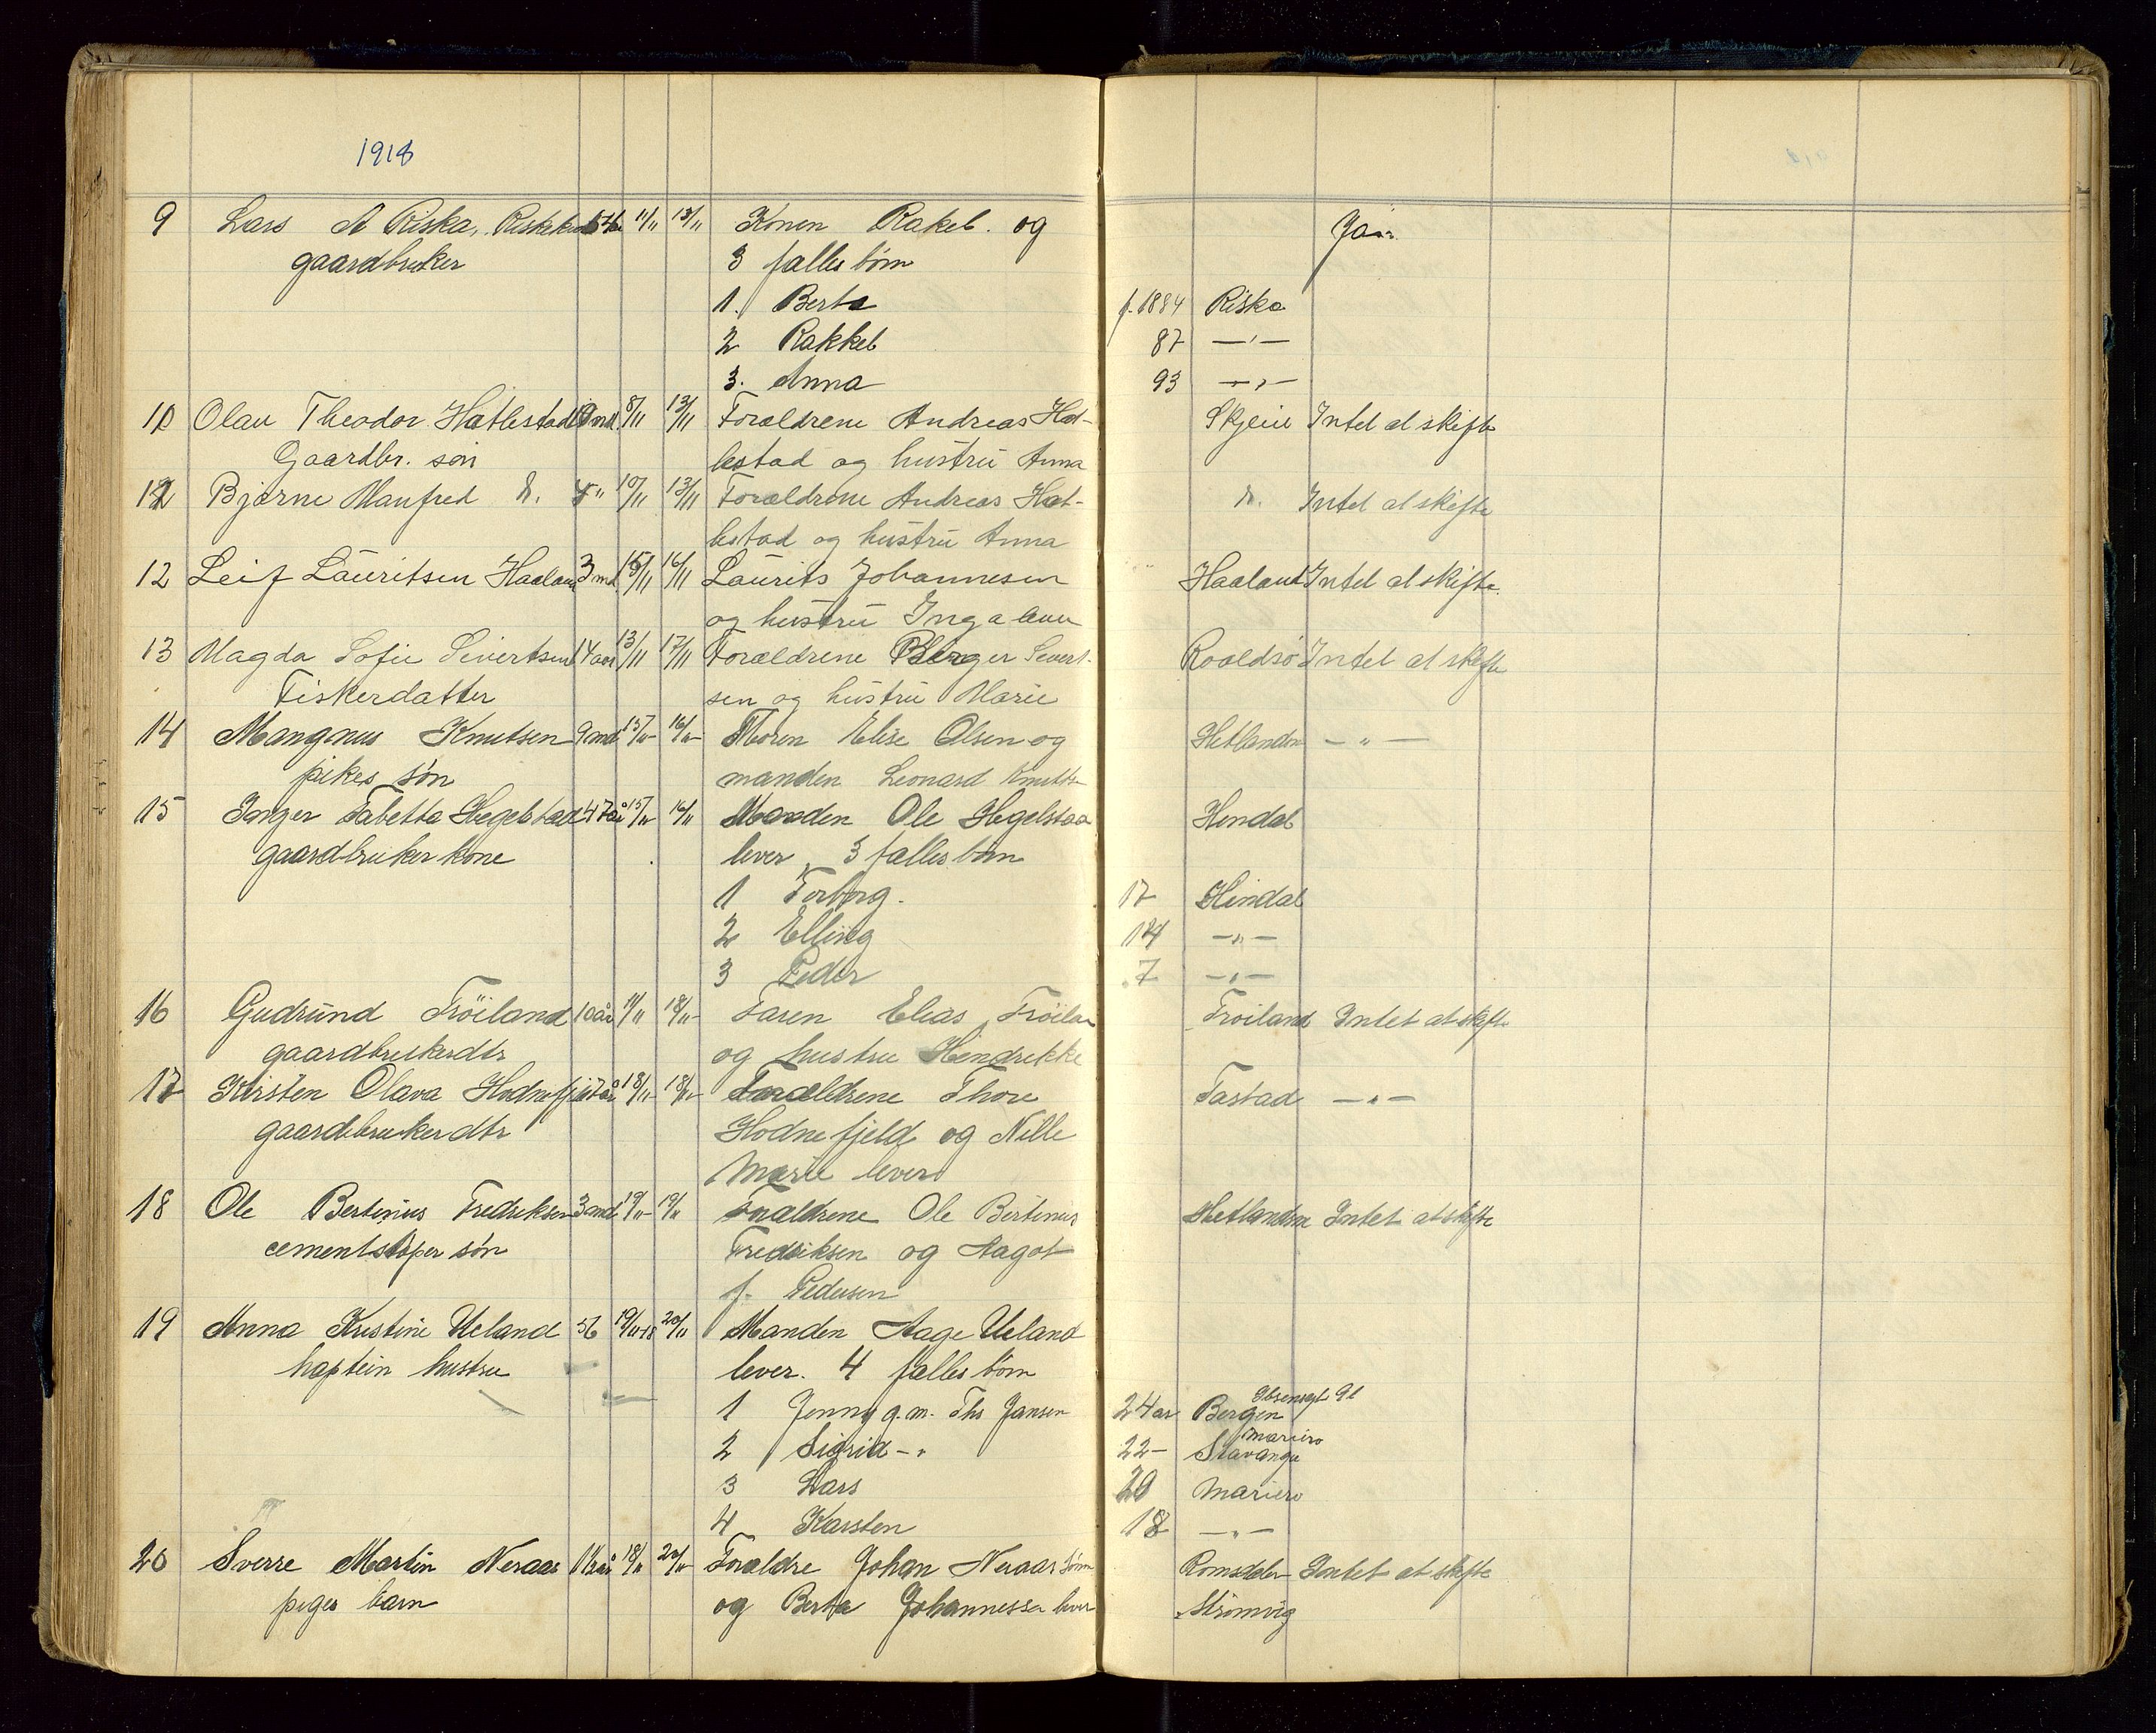 1918
9 Lars A Riska, 11/11 13/11 Konen Rakel. og Ja
gaardbruker 3 fælles børn
1. Berta f. 1884 Riska
2 Rakkel 87 —"—
3. Anna 93 —"—
10 Olav Theodor Hatlestad 8/11 13/11 Forældrene Andreas Hat- Skjeie Intet at skifte
Gaardbr. søn lestad og hustru Anna
12 Bjarne Manfred d. 10/11 13/11 Forældrene Andreas Hat- d. Intet at skifte
lestad og hustru Anna
12 Leif Lauritsen Haaland 3 md 15/11 16/11 Laurits Johannesen Haaland Intet at skifte
og hustru Inga
13 Magda Sofie Sivertsen 14 aar 13/11 17/11 Forældrene Berger Severt- Roaldsø Intet at skifte
Fiskerdatter sen og hustru Marie
14 Mangnus Knutsen 9 md 15/11 16/11 Moren Elise Olsen og Hetlandsm —"—
pikes søn manden Leonard Knutsen
15 Inger Tabetta Hegelstad 47 år 15/11 16/11 Manden Ole Hegelstaa Hendal
gaardbruker kone lever 3 fælles børn
1 Torborg. 17 Hindal
2 Elling 14 —"—
3 Peder 7 —"—
16 Gudrund Tröiland 10 år 11/11 18/11 Faren Elias Tröilan Tröiland Intet at skifte
gaardbrukerdtr og hustru Hendrikke
17 Kirsten Olava Hodnefj 18/11 18/11 Forældrene Thore Tastad —"—
gaardbrukerdtr Hodnefjeld og Nille
Marie lever
18 Ole Bertinius Fredriksen 3 md 19/11 19/11 Forældrene Ole Bertinus Hetlandsm Intet at skifte
cementstøper søn Fredriksen og Aagot
f. Pedersen
19 Anna Kristine Ueland 56 19/11-18 20/11 Manden Aage Ueland
kaptein hustru lever. 4 fælles børn
1 Jenny g.m. Ths Jansen 24 aar Bergen
2 Sigrid -" 22 — Stavanger Mariero
3 Lars 20 Mariero
4 Karsten 18 —"—
20 Sverre Martin Neraas 18/11 20/11 Forældre Johan Neraas Romsdalen Intet at skifte
piges barn og Berta Johannessen lever Strømvig